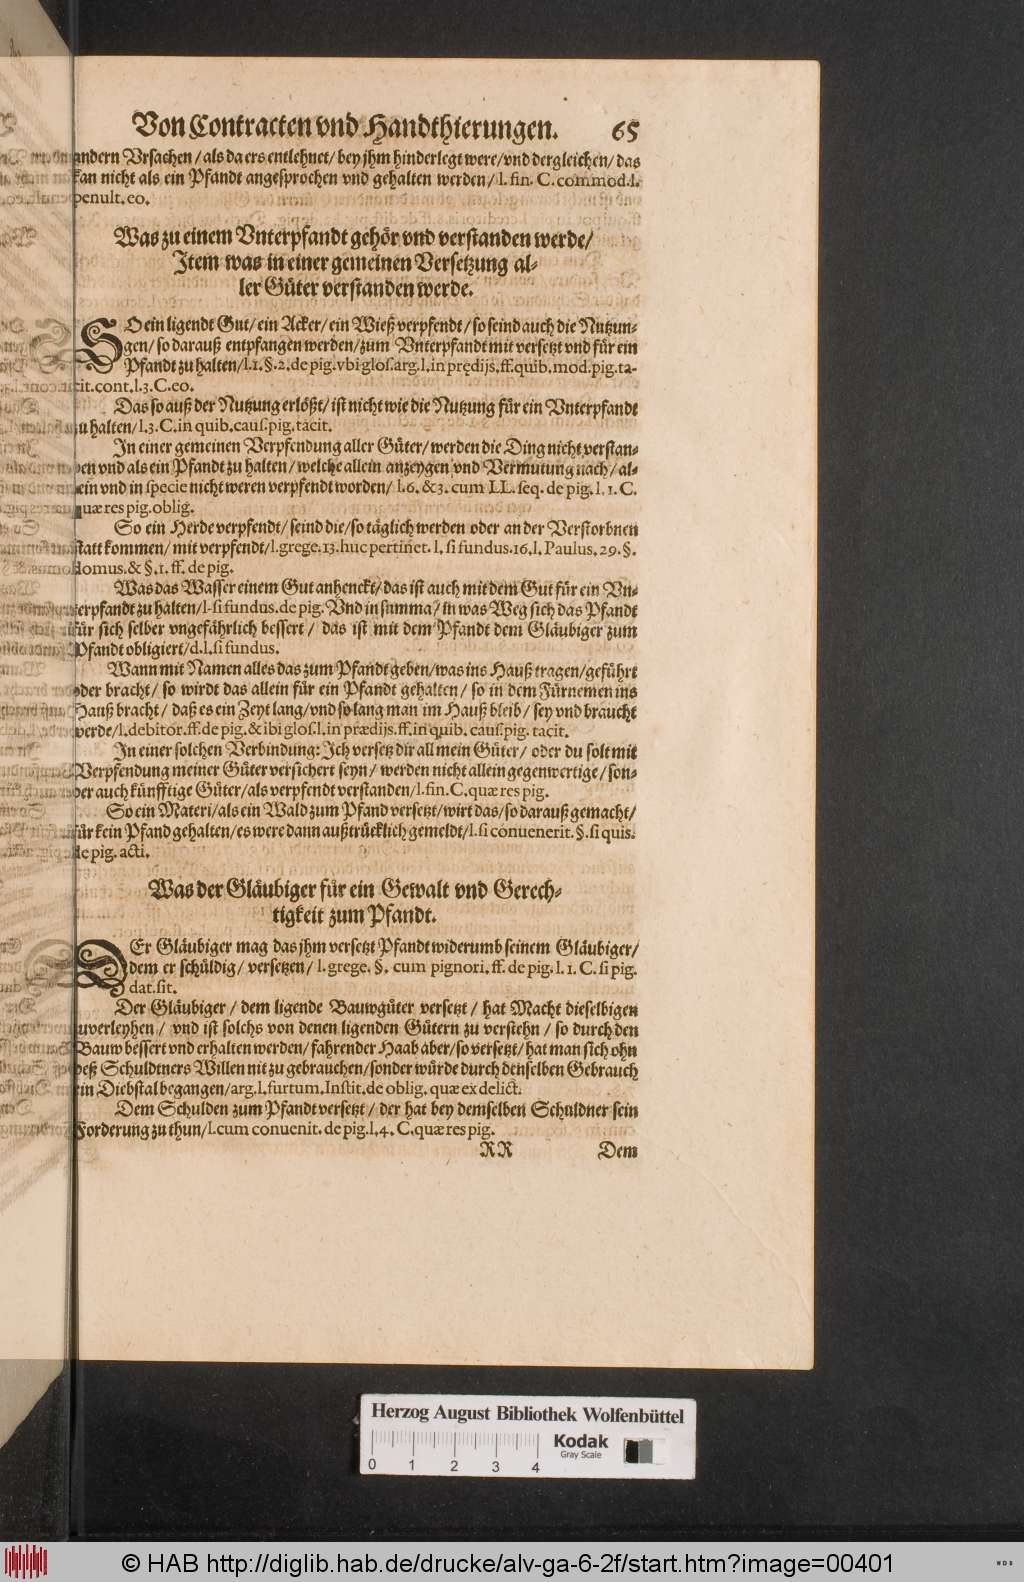 Von Contracten vnd Handthierungen. 65
andern Vrsachen / als da ers entlehnet / bey jhm hinderlegt were / vnd dergleichen / das
kan nicht als ein Pfandt angesprochen vnd gehalten werden / l. fin. C. commod. l.
penult. eo.
Was zu einem Vnterpfandt gehör vnd verstanden werde /
Item was in einer gemeinen Versetzung al-
ler Güter verstanden werde.
SO ein ligendt Gut / ein Acker / ein Wieß verpfendt / so seind auch die Nutzun-
gen / so darauß entpfangen werden / zum Vnterpfandt mit versetzt vnd für ein
Pfandt zu halten / l. 1. §. 2. de pig. vbi glos. arg. l. in prędijs. ff. quib. mod. pig. ta-
cit. cont. l. 3. C. eo.
Das so auß der Nutzung erlößt / ist nicht wie die Nutzung für ein Vnterpfandt
zu halten / l. 3. C. in quib. caus. pig. tacit.
In einer gemeinen Verpfendung aller Güter / werden die Ding nicht verstan-
den vnd als ein Pfandt zu halten / welche allein anzeygen vnd Vermutung nach / al-
lein vnd in specie nicht weren verpfendt worden / l. 6. & 3. cum LL. seq. de pig. l. 1. C.
quæ res pig. oblig.
So ein Herde verpfendt / seind die / so täglich werden oder an der Verstorbnen
statt kommen / mit verpfendt / l. grege. 13. huc pertinet. l. si fundus. 16. l. Paulus. 29. §.
domus. & §. 1. ff. de pig.
Was das Wasser einem Gut anhenckt / das ist auch mit dem Gut für ein Vn-
terpfandt zu halten / l. si fundus. de pig. Vnd in summa / in was Weg sich das Pfandt
für sich selber vngefährlich bessert / das ist mit dem Pfandt dem Gläubiger zum
Pfandt obligiert / d. l. si fundus.
Wann mit Namen alles das zum Pfandt geben / was ins Hauß tragen / geführt
oder bracht / so wirdt das allein für ein Pfandt gehalten / so in dem Fürnemen ins
Hauß bracht / daß es ein Zeyt lang / vnd so lang man im Hauß bleib / sey vnd braucht
werde / l. debitor. ff. de pig. & ibi glos. l. in prædijs. ff. in quib. caus. pig. tacit.
In einer solchen Verbindung: Ich versetz dir all mein Güter / oder du solt mit
Verpfendung meiner Güter versichert seyn / werden nicht allein gegenwertige / son-
der auch künfftige Güter / als verpfendt verstanden / l. fin. C. quæ res pig.
So ein Materi / als ein Wald zum Pfand versetzt / wirt das / so darauß gemacht /
für kein Pfand gehalten / es were dann außtrücklich gemeldt / l. si conuenerit. §. si quis.
de pig. acti.
Was der Gläubiger für ein Gewalt vnd Gerech-
tigkeit zum Pfandt.
DEr Gläubiger mag das jhm versetzt Pfandt widerumb seinem Gläubiger /
dem er schüldig / versetzen / l. grege. §. cum pignori. ff. de pig. l. 1. C. si pig.
dat. sit.
Der Gläubiger / dem ligende Bauwgüter versetzt / hat Macht dieselbigen
zuverleyhen / vnd ist solchs von denen ligenden Gütern zu verstehn / so durch den
Bauw bessert vnd erhalten werden / fahrender Haab aber / so versetzt / hat man sich ohn
deß Schuldtners Willen nit zu gebrauchen / sonder würde durch denselben Gebrauch
ein Diebstal begangen / arg. l. furtum. Instit. de oblig. quæ ex delict.
Dem Schulden zum Pfandt versetzt / der hat bey demselben Schuldner sein
Forderung zu thun / l. cum conuenit. de pig. l. 4. C. quæ res pig.
RR Dem
Herzog August Bibliothek Wolfenbüttel
Kodak
Gray Scale
0 1 2 3 4
© HAB http://diglib.hab.de/drucke/alv-ga-6-2f/start.htm?image=00401